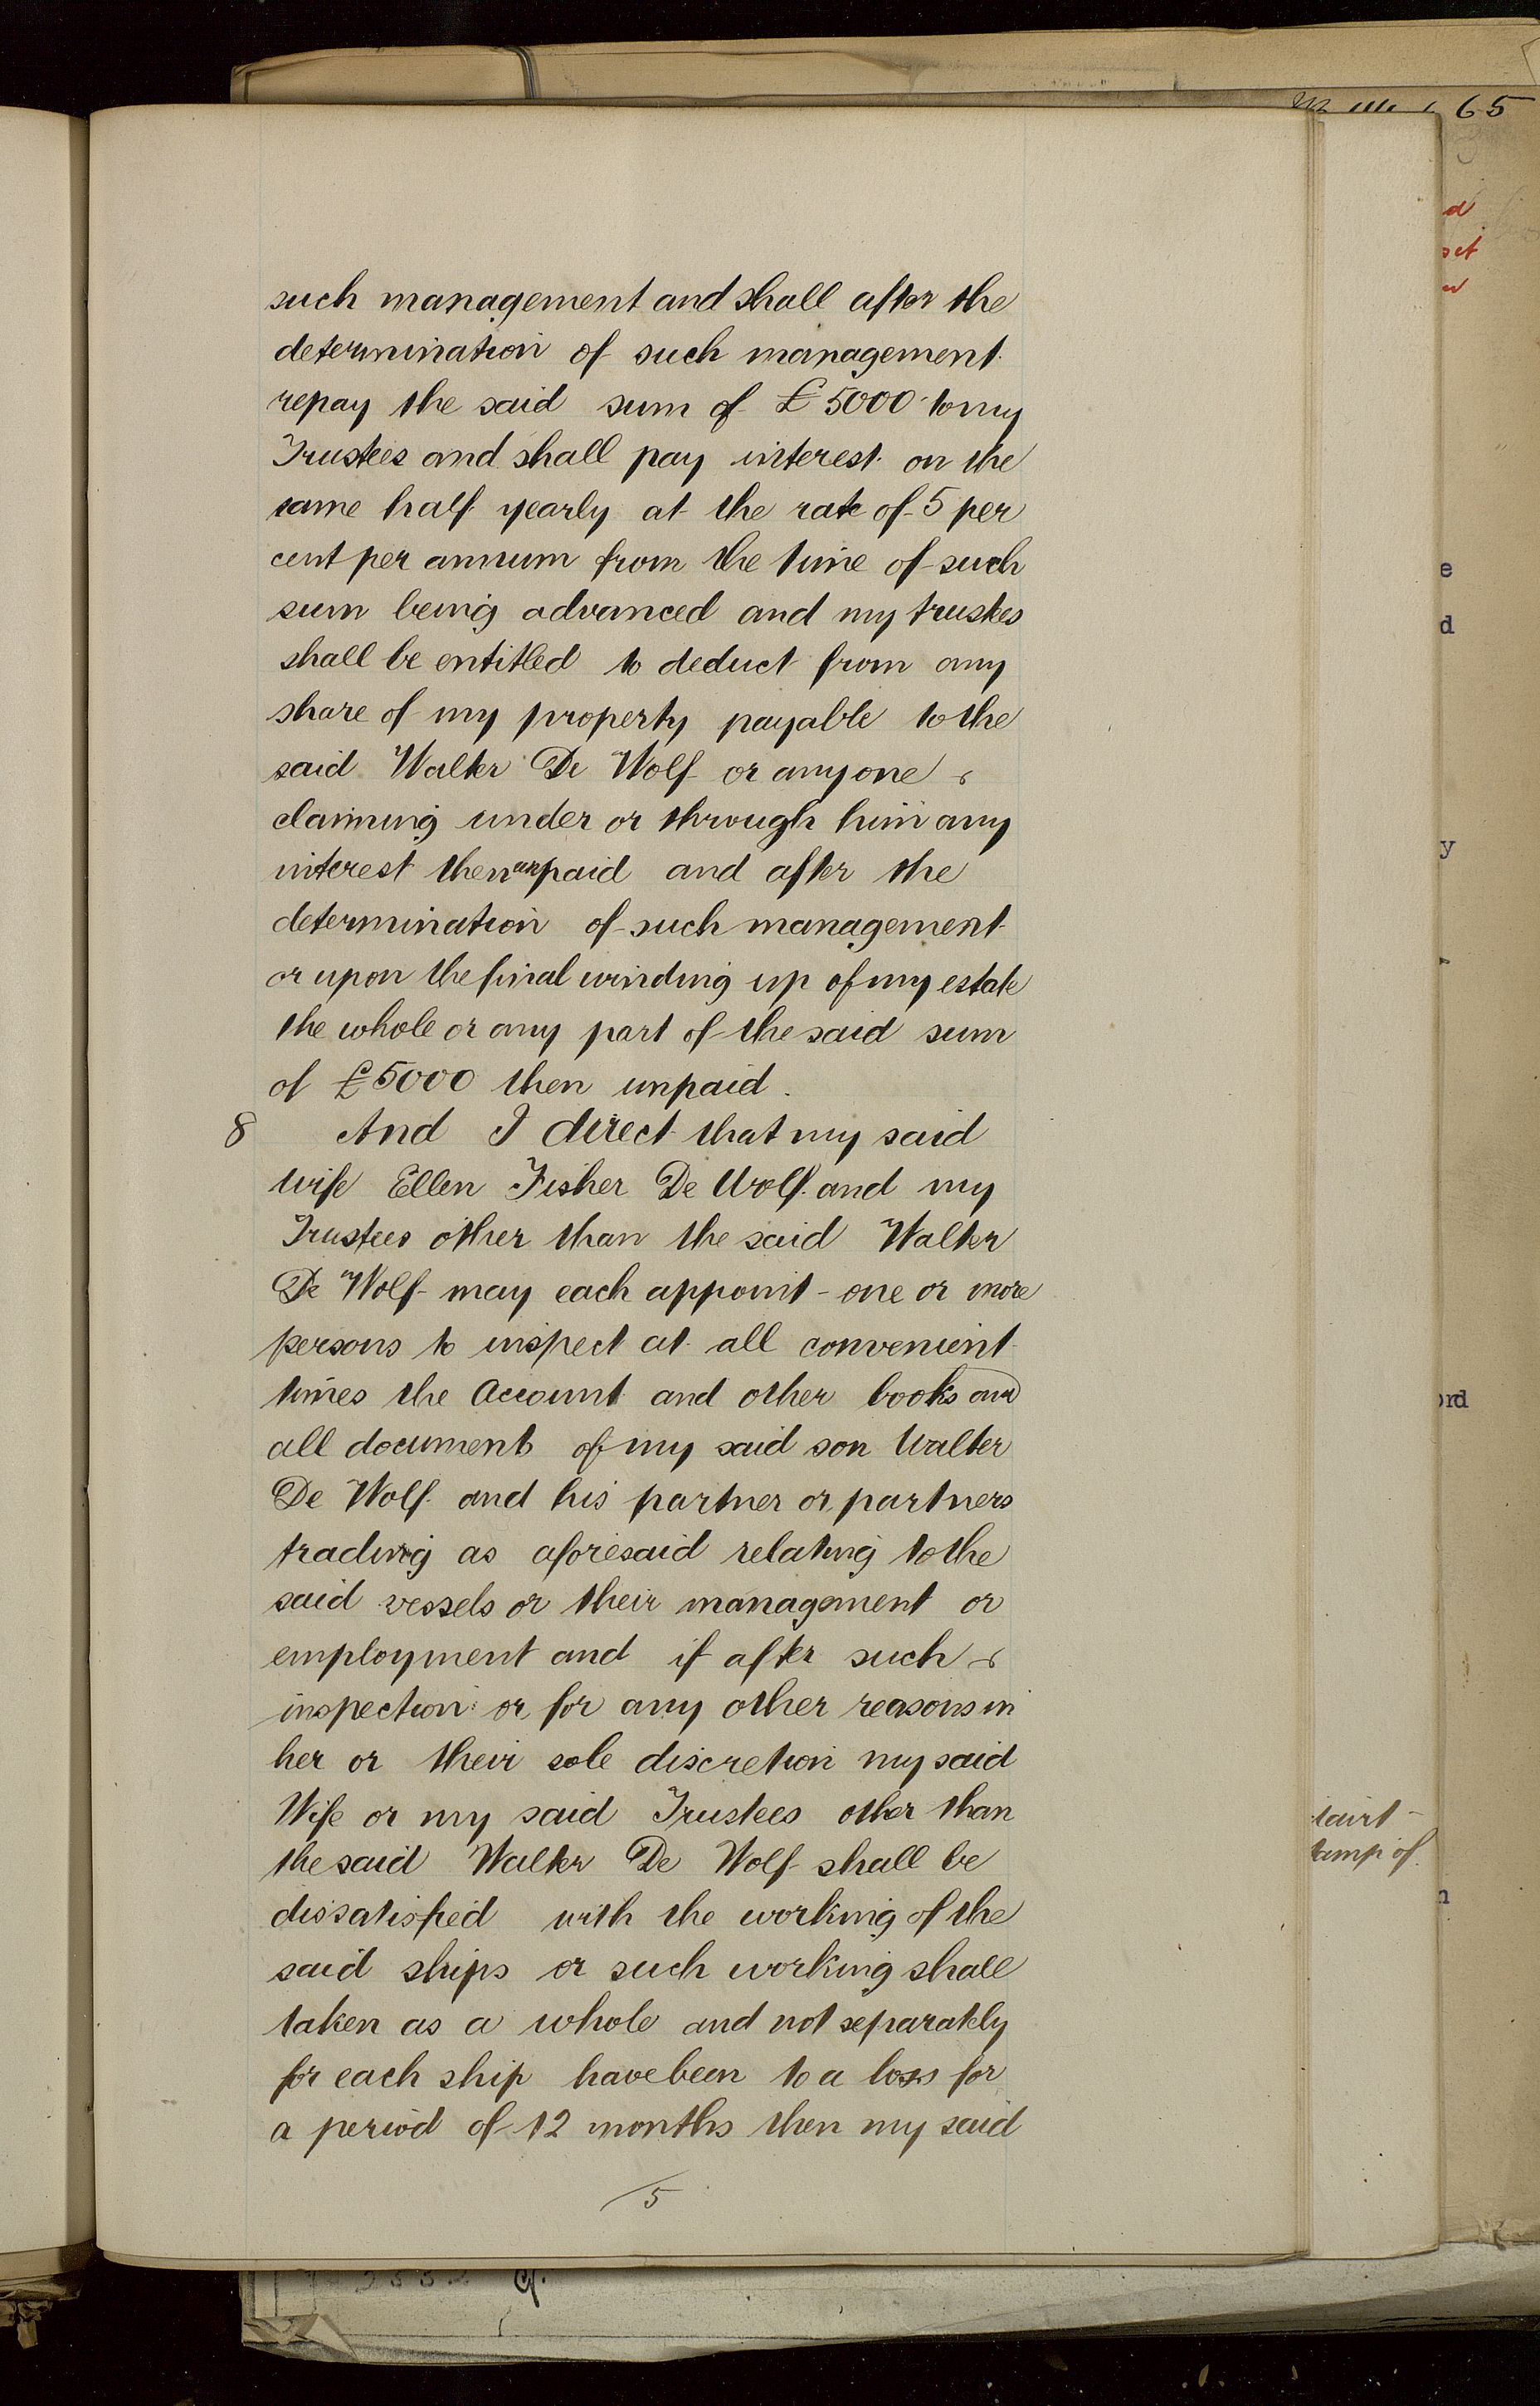 65
such management and shall after the
determination of such management
repay the said sum of £5000 to my
Trustees and shall pay interest on the
same half yearly at the rate of 5 per
cent per annum from the time of such
sum being advanced and my trustees
shall be entitled to deduct from any
share of my property payable to the
said Walter De Wolf or anyone
claiming under or through him any
interest then unpaid and after the
determination of such management
or upon the final winding up of my estate
the whole or any part of the said sum
of £5000 then unpaid.
8 And I direct that my said
wife Ellen Fisher De Wolf and my
Trustees other than the said Walter
De Wolf may each appoint one or more
persons to inspect at all convenient
times the Account and other books and
all documents of my said son Walter
De Wolf and his partner or partners
trading as aforesaid relating to the
said vessels or their management or
employment and if after such
inspection or for any other reasons in
her or their sole discretion my said
Wife or my said Trustees other than
the said Walter De Wolf shall be
dissatisfied with the working of the
said ships or such working shall
taken as a whole and not separately
for each ship have been to a loss for
a period of 12 months then my said
5